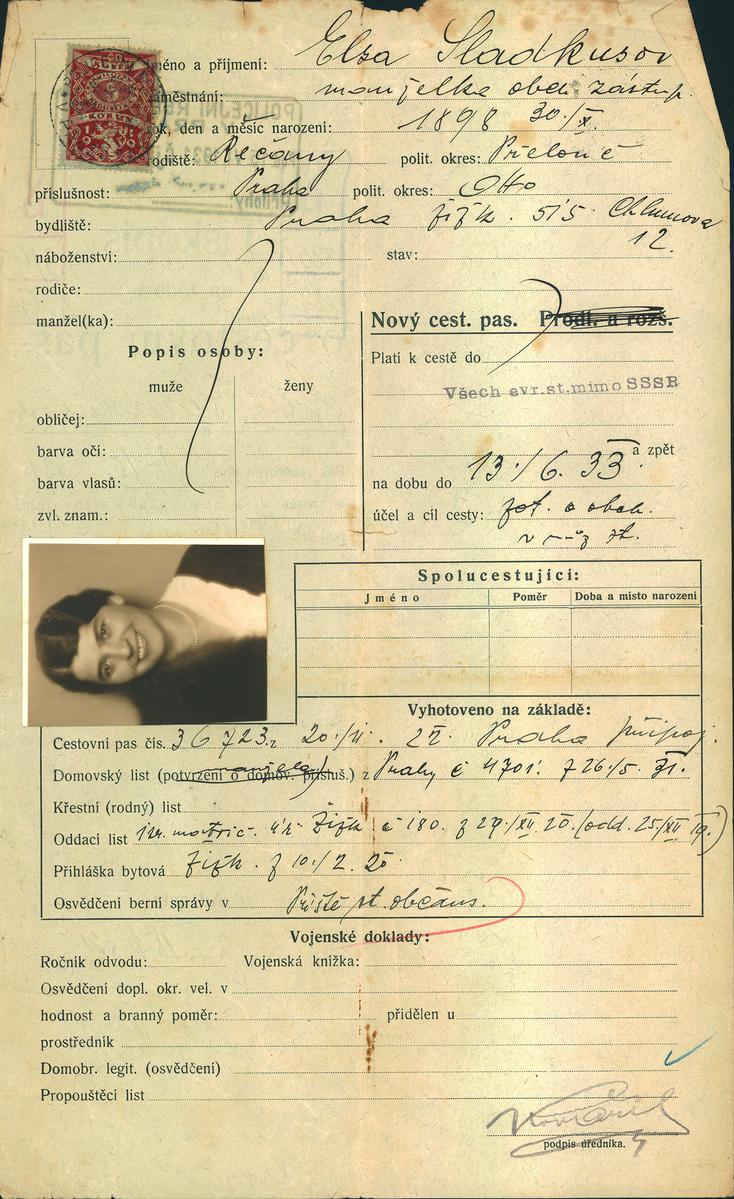 Jméno a příjmení: Elsa Sladkusov
zaměstnání: manželka obch. zástup.
rok, den a měsíc narození: 1898 30./X.
rodiště: Řečany polit. okres: Přelouč
příslušnost: Praha polit. okres: Otto
bydliště: Praha Žižk. 515 Chlumova
12.
náboženství: stav:
rodiče:
manžel(ka):
Nový cest. pas. Prodl. a rozš.
Popis osoby:
Platí k cestě do
muže ženy
Všech evr. st. mimo SSSR
obličej:
barva očí: a zpět
barva vlasů: na dobu do 13./6. 33
zvl. znam.: účel a cíl cesty: zot. a obch.
v růz st.
Spolucestující:
Jméno Poměr Doba a místo narození
Vyhotoveno na základě:
Cestovní pas čís. 36723 z 20./II. Praha připoj.
Domovský list (potvrzení o domov. přísluš.) z Prahy č 4701. z 26./5. 31.
Křestní (rodný) list
Oddací list Žižk č 180. z 29./XII. 20. (odd. 25/XII 19.)
Přihláška bytová Žižk. z 10./2. 20
Osvědčení berní správy v Příště st. občans.
Vojenské doklady:
Ročník odvodu: Vojenská knížka:
Osvědčení dopl. okr. vel. v
hodnost a branný poměr: přidělen u
prostředník
Domobr. legit. (osvědčení)
Propouštěcí list
podpis úředníka.
KORUN